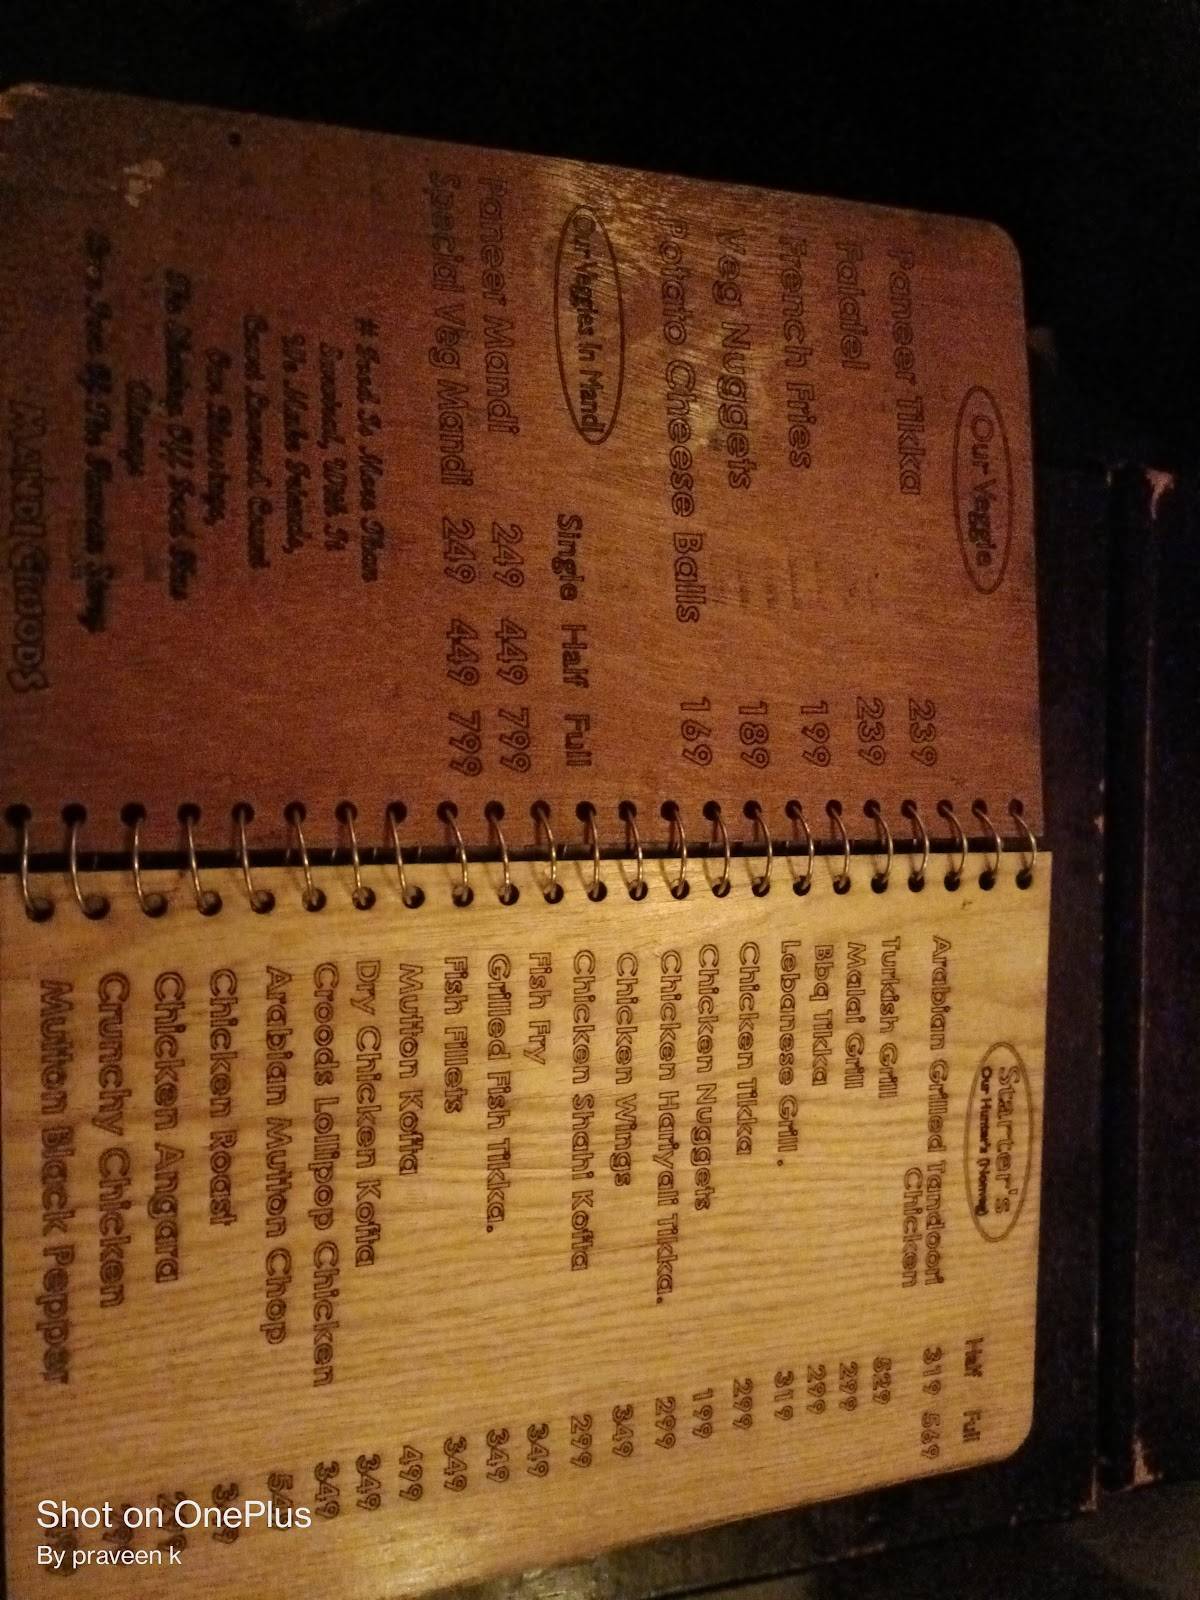 Our Veggie
Paneer Tikka 239
Falafel 239
French Fries 199
Veg Nuggets 189
Potato Cheese Balls 169
Our Veggies In Mandi
Single Half Full
Paneer Mandi 249 449 799
Special Veg Mandi 249 449 799
# Food Is More Than
Survival, With It
We Make Friends,
Court Loved, Count
Our Blessings,
MANDI CROODS
Starter's
Our Hunter's (Nonveg)
Half Full
Arabian Grilled Tandoori 319 569
Chicken
Turkish Grill 529
Malai Grill 299
Bbq Tikka 299
Lebanese Grill. 319
Chicken Tikka 299
Chicken Nuggets 199
Chicken Hariyali Tikka. 299
Chicken Wings 349
Chicken Shahi Kofta 299
Fish Fry 349
Grilled Fish Tikka. 349
Fish Fillets 349
Mutton Kofta 499
Dry Chicken Kofta 349
Croods Lollipop Chicken 349
Arabian Mutton Chop
Chicken Roast
Chicken Angara
Crunchy Chicken
Mutton Black Pepper
Shot on OnePlus
By praveen k